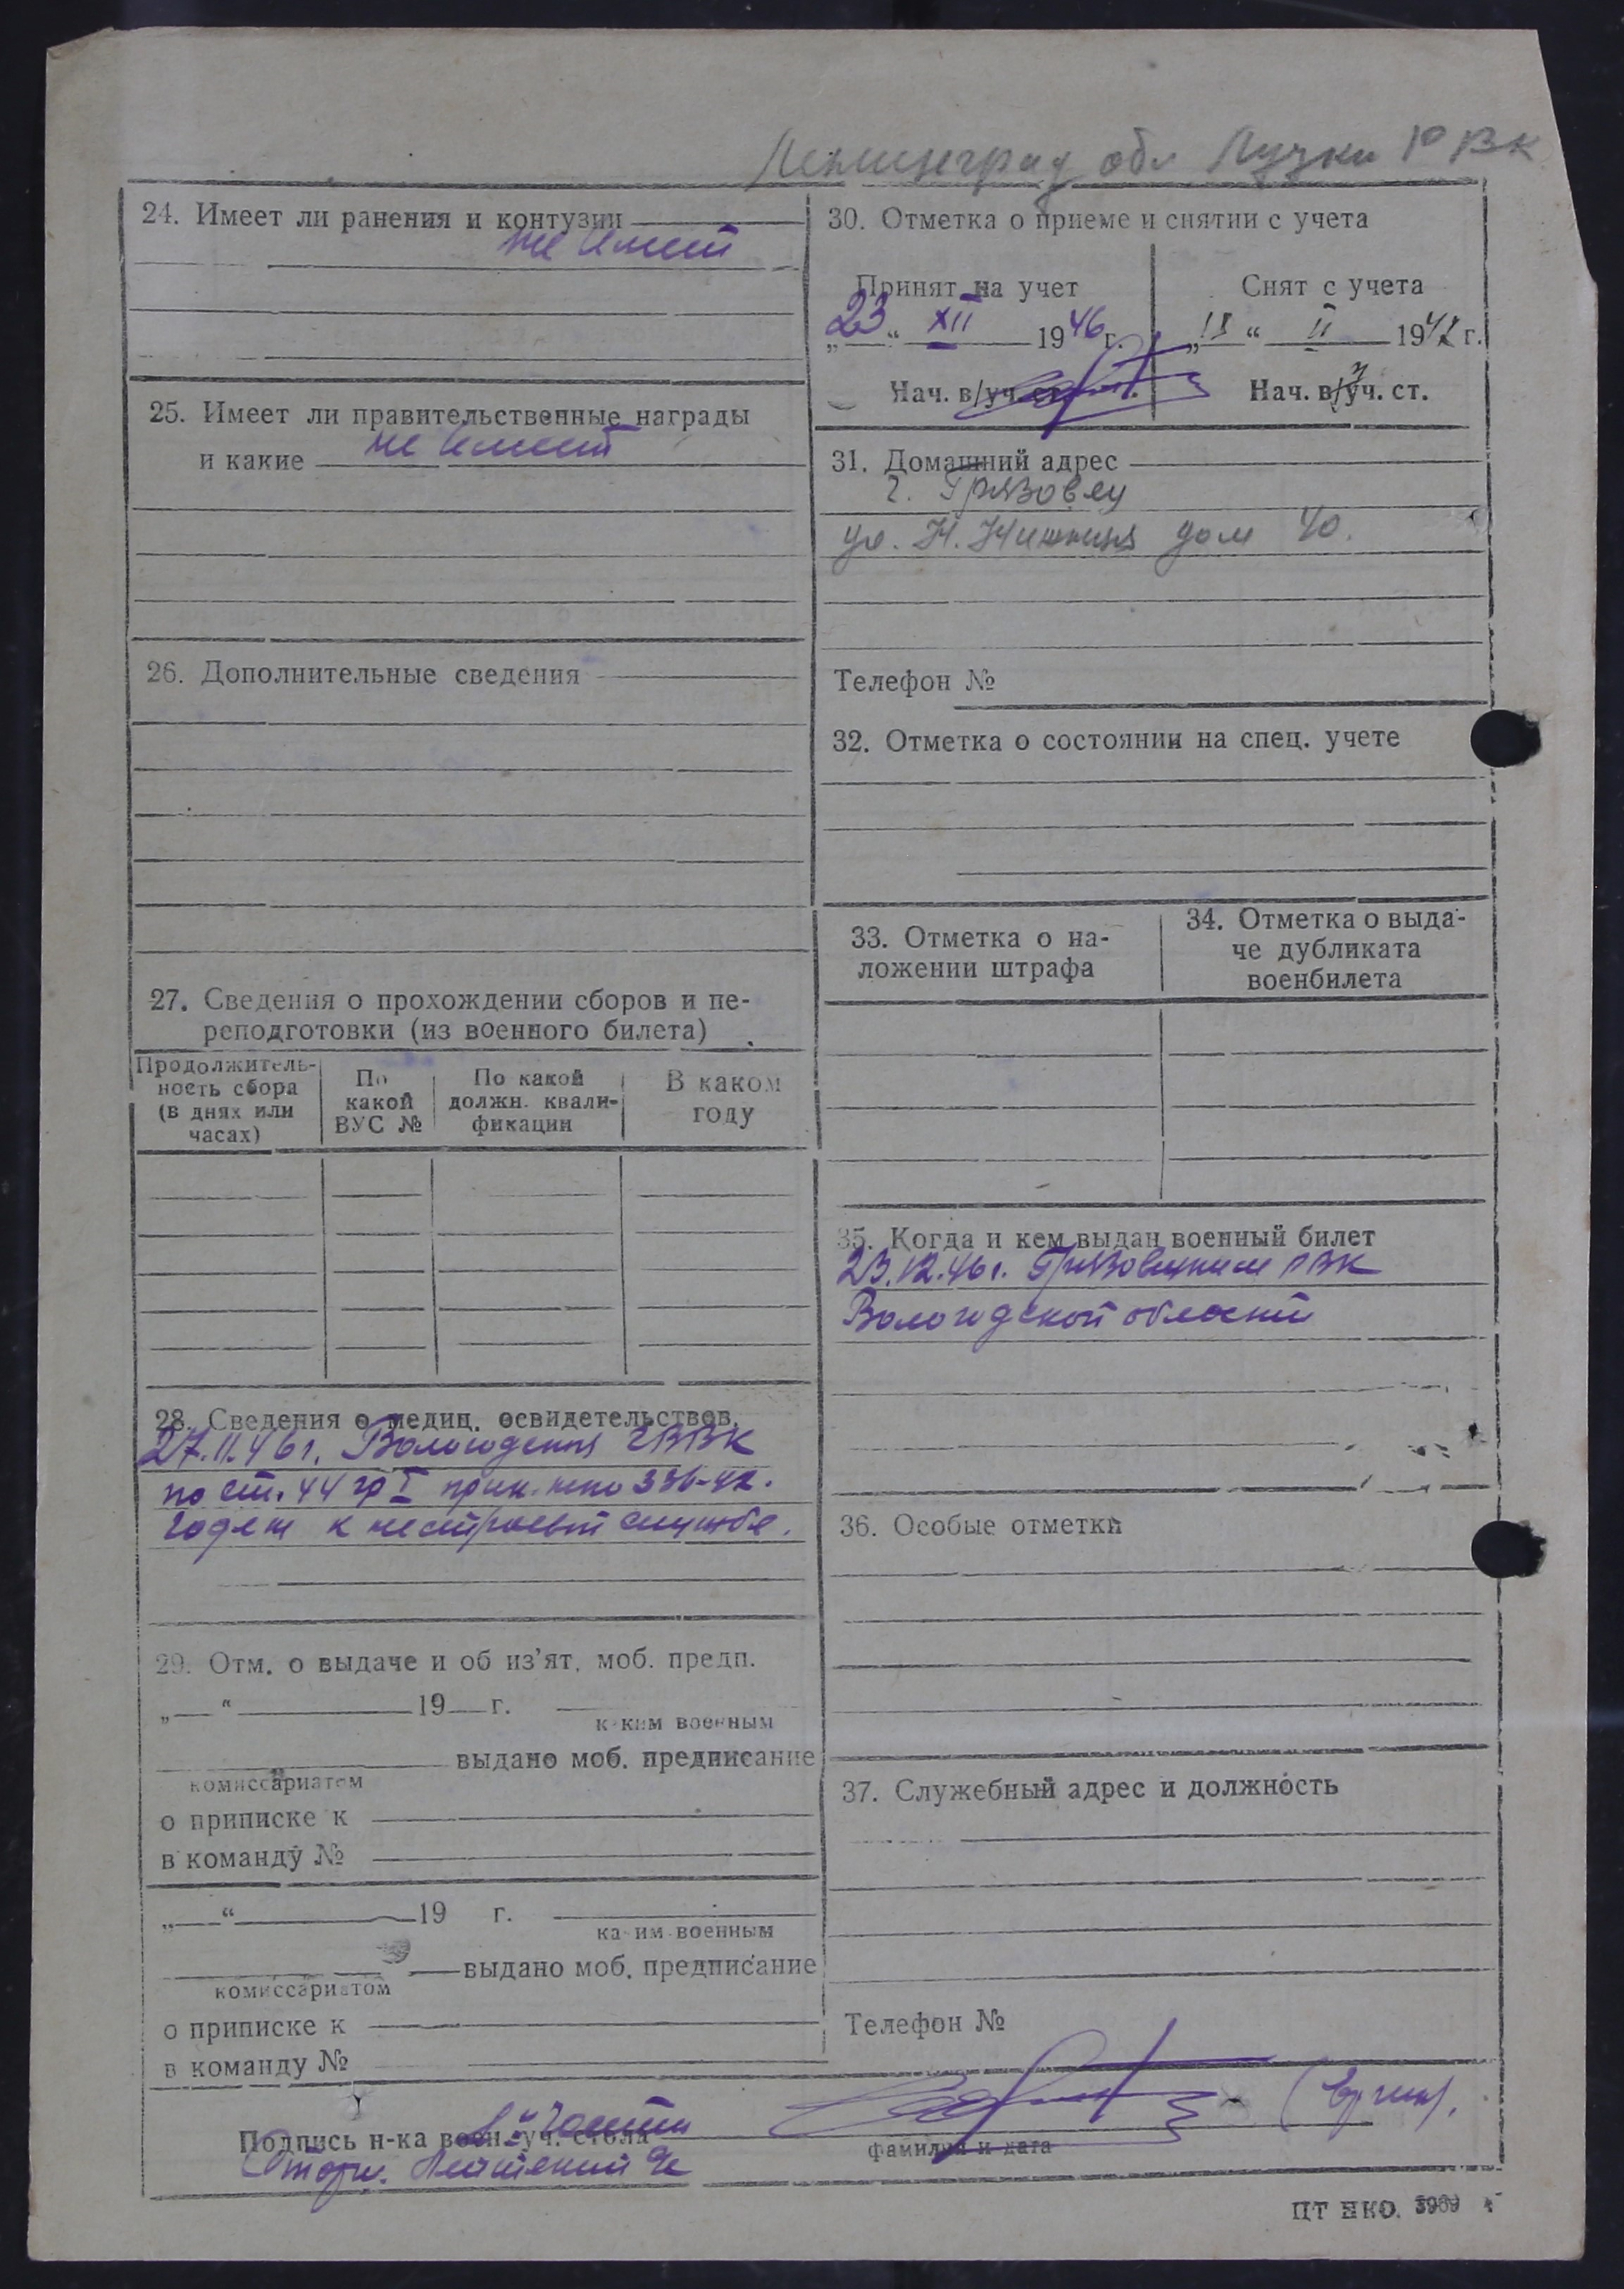 Ленинград обл Лужки РВК
24. Имеет ли ранения и контузии
не имеет
25. Имеет ли правительственные награды
и какие не имеет
26. Дополнительные сведения
27. Сведения о прохождении сборов и пе-
реподготовки (из военного билета)
Продолжитель-
ность сбора
(в днях или
часах)
По
какой
ВУС №
По какой
должн. квали-
фикации
В каком
году
28. Сведения о медиц. освидетельствов.
27.11.46 г. Вологодская
по ст. 44 гр I прик. нко 336-42.
годен к нестроевой службе.
29. Отм. о выдаче и об из'ят. моб. предп.
„ “ 19 г.
каким военным
выдано моб. предписание
комиссариатом
о приписке к
в команду №
„ “ 19 г.
каким военным
выдано моб. предписание
комиссариатом
о приписке к
в команду №
30. Отметка о приеме и снятии с учета
Принят на учет
„23“ XII 1946 г.
Нач. в/уч. ст.
Снят с учета
„18“ II 194 г.
Нач. в/уч. ст.
31. Домашний адрес
г. Грязовец
ул. дом 40.
Телефон №
32. Отметка о состоянии на спец. учете
33. Отметка о на-
ложении штрафа
34. Отметка о выда-
че дубликата
военбилета
35. Когда и кем выдан военный билет
23.12.46 г. Грязовецким РВК
Вологодской области
36. Особые отметки
37. Служебный адрес и должность
Телефон №
Подпись н-ка воен. уч. стола
фамилия и дата
части
ЦТ НКО. 3969